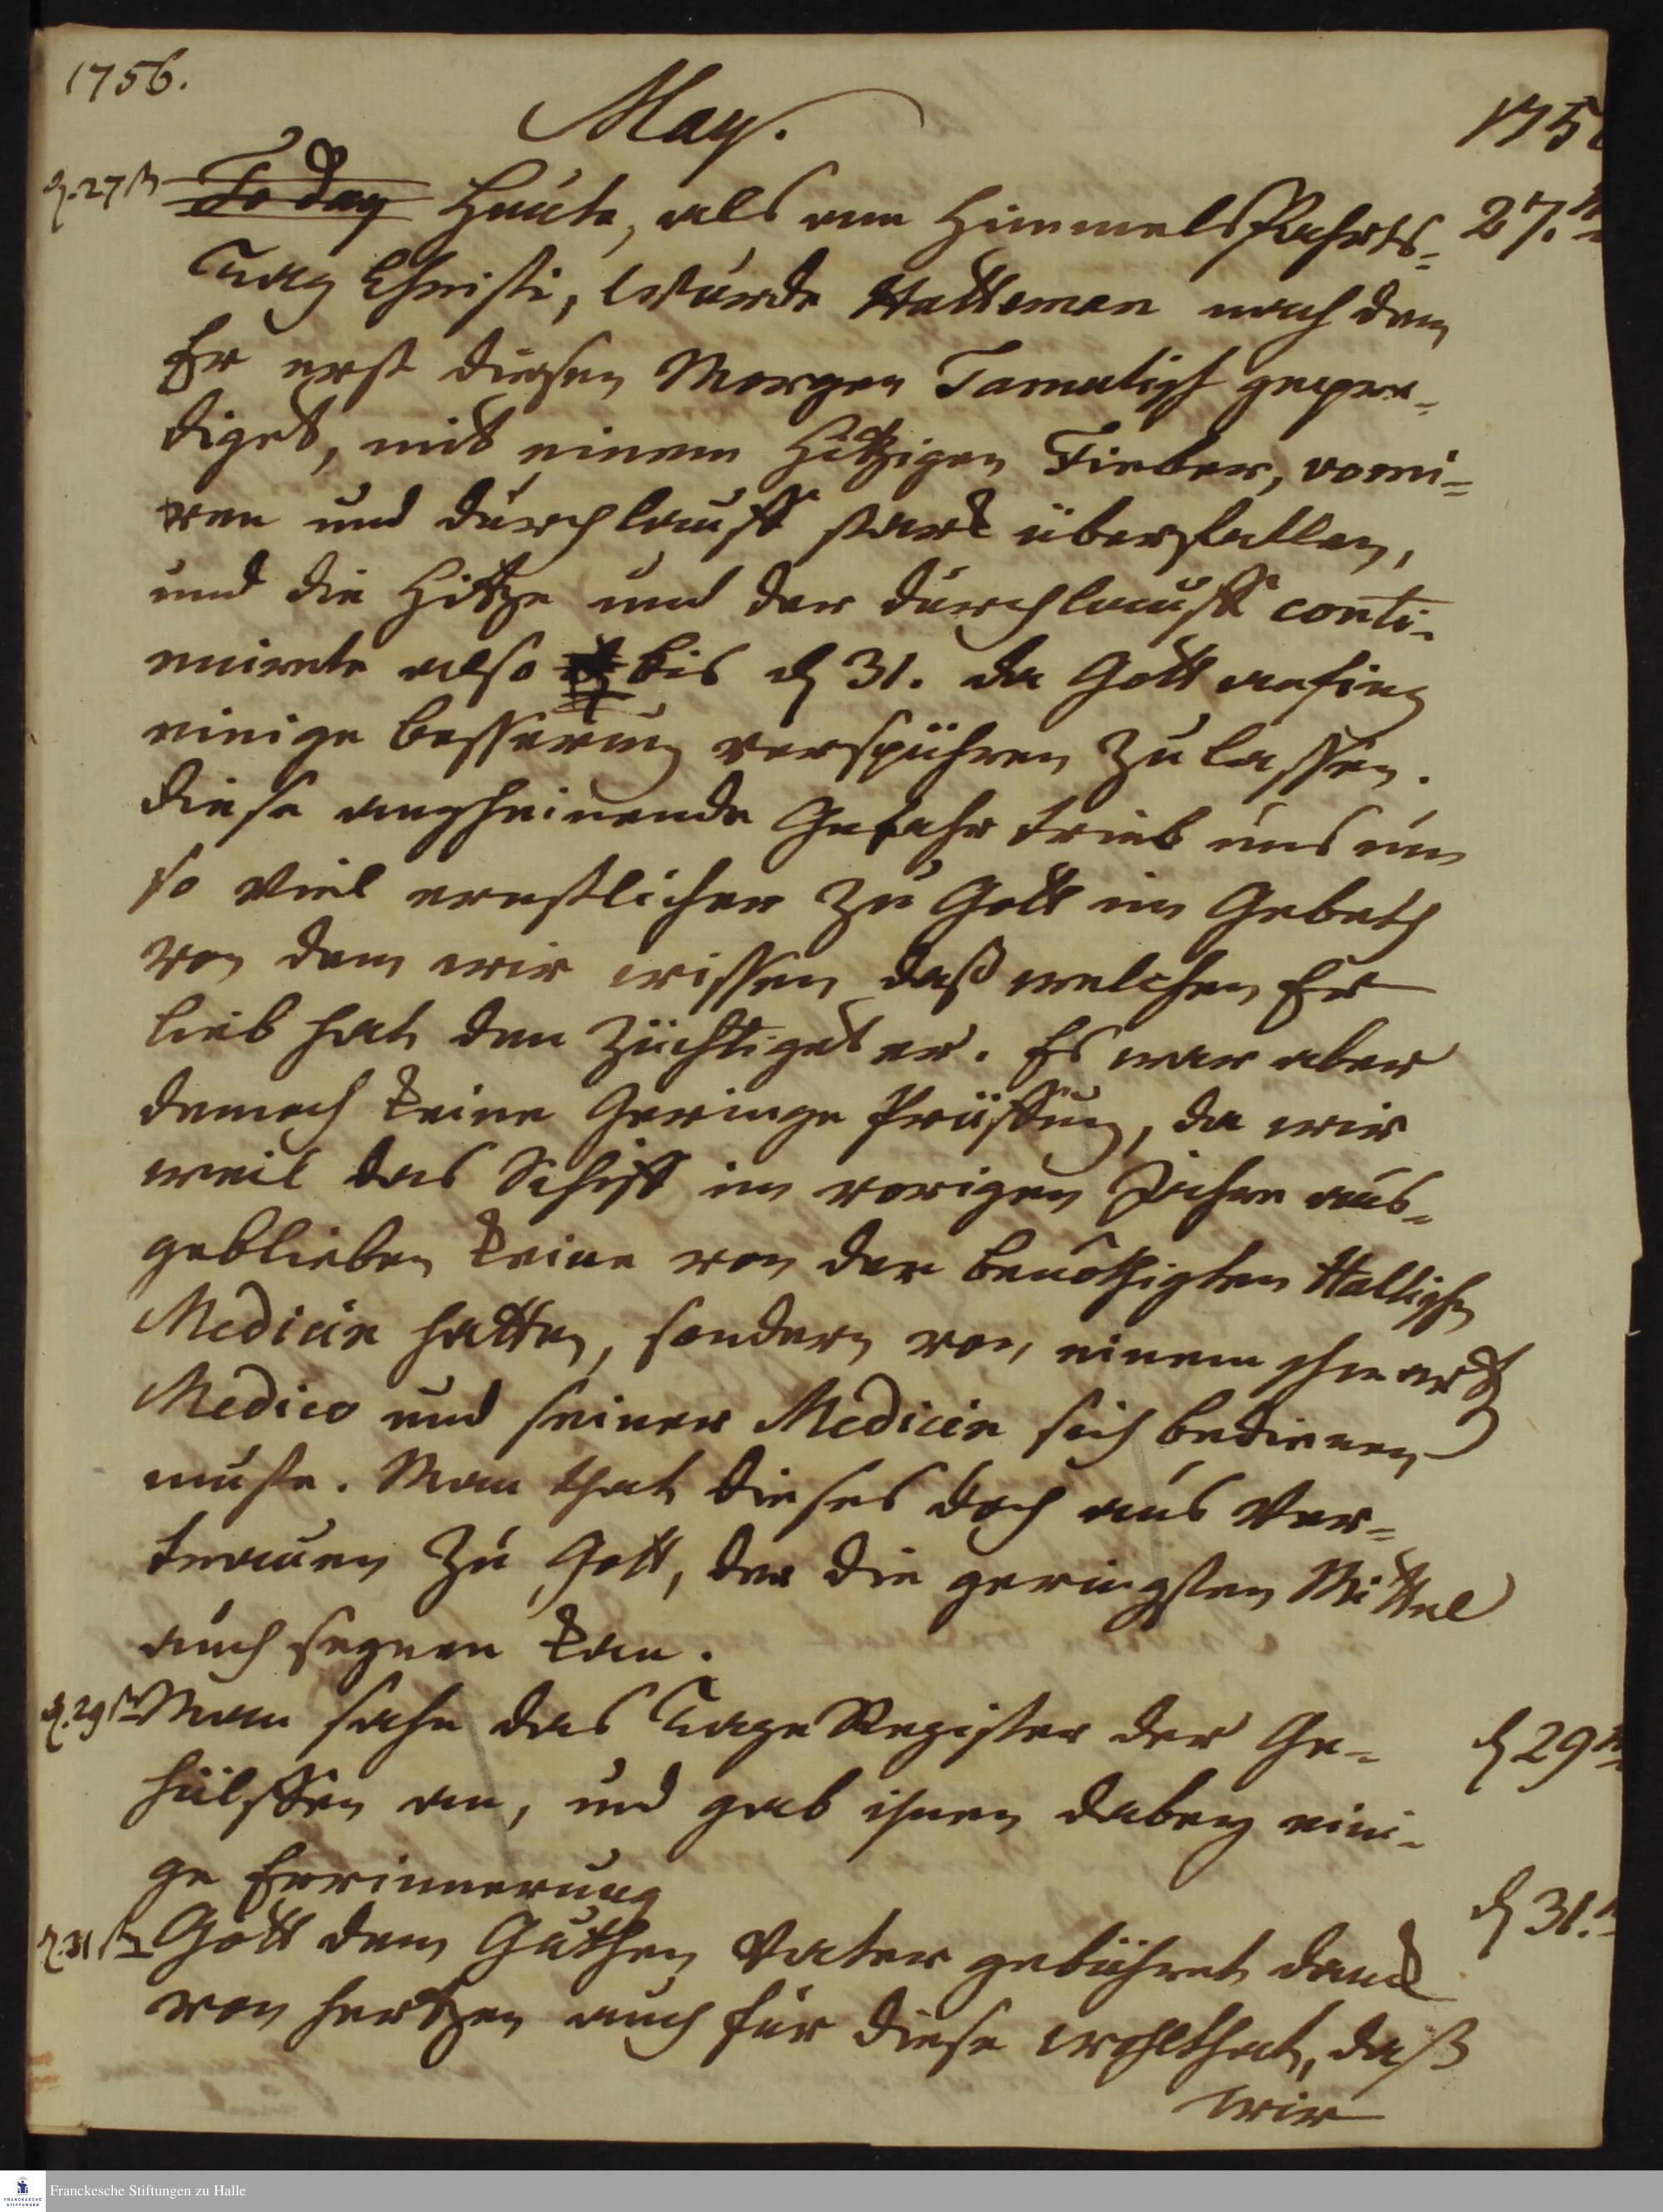 1756.
May.
175
d. 27st To day Heute, als am Himmelsfahrts-
27.st
Tag Christi, Wurde Hutteman nach dem
Er erst diesen Morgen Tamulisch gepre-
diget, mit einem Hitzigen Fieber, vomi-
ren und durchlauff stark überfallen,
und die Hitze und der durchlauff conti-
nuirete also bis d 31. da Gott anfing
einige besserung verspühren zu lassen.
diese anscheinende Gefahr trieb uns um
so viel ernstlicher zu Gott im Gebeth
von dem wir wissen daß welchen Er
lieb hat den züchtiget er. Es war aber
demnach keine Geringe Prüffung, da wir
weil das Schiff im vorigen Jahre aus-
geblieben keine von der benöthigten Hallischen
Medicin hatten, sondern von einem schwartz
Medico und seiner Medicin sich bedienen
muste. Man that dieses doch aus Ver-
trauen zu Gott, der die geringsten Mittel
auch segnen kan.
d. 29st Man sahe das Tage Register der Ge-
d 29st
hülffen an, und gab ihnen dabey eini-
ge Erinnerung
d. 31st Gott dem Guthen Vater gebühret danck
d 31.
von hertzen auch für diese wohlthat, daß
wir
Franckesche Stiftungen zu Halle
FRANCKESCHE
STIFTUNGEN